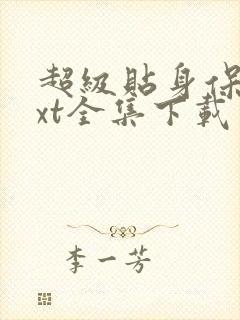 超級貼身保
xt全集下載
李一芳